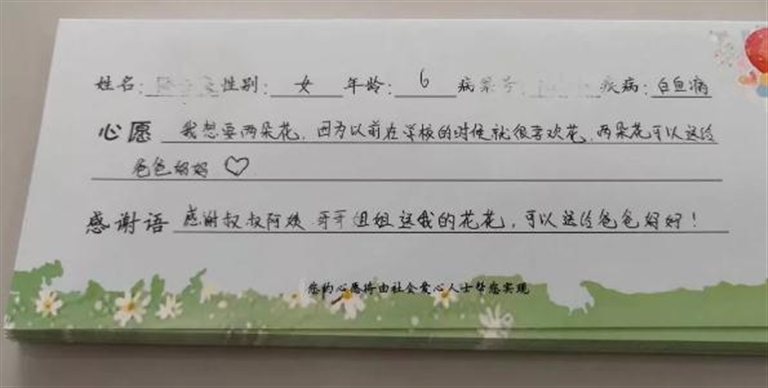 姓名: 性别: 女 年龄: 6 病案号: 疾病: 白血病
心愿 我想要两朵花，因为以前在学校的时候就很喜欢花，两朵花可以送给
爸爸妈妈 ♡
感谢语 感谢叔叔阿姨 哥哥姐姐送我的花花，可以送给爸爸妈妈！
您的心愿将由社会爱心人士帮您实现